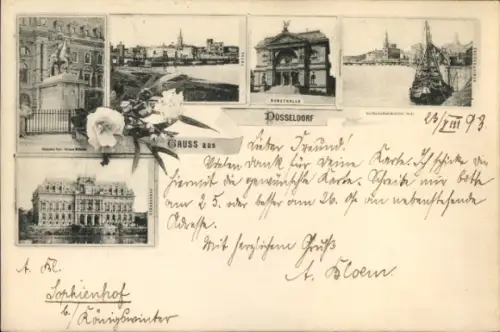 KUNSTHALLE
GRUSS AUS DÜSSELDORF
23/VIII 93.
Lieber Freund!
Vielen Dank für Deine Karte. Ich schicke Dir
hiermit die gewünschte Karte. Schreibe mir bitte
am 25. oder besser am 26. an nebenstehende
Adresse.
Mit herzlichem Gruß
A. Bloem
A. Bl.
Sophienhof
b/ Königswinter